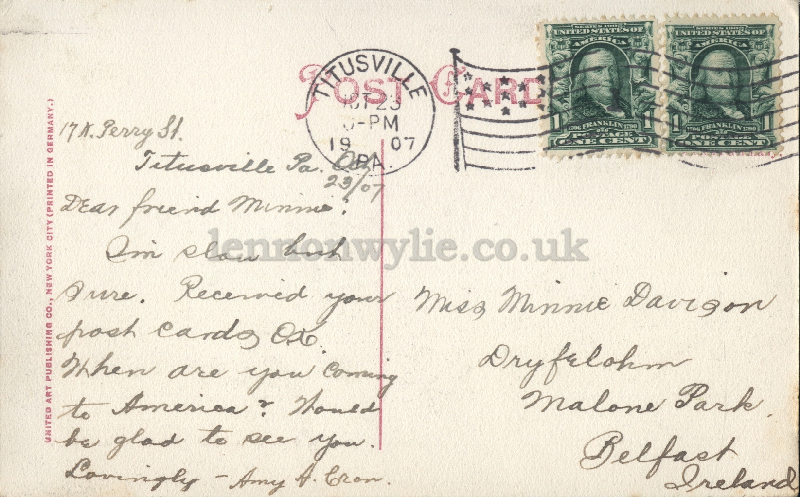 POST CARD
TITUSVILLE
23
-PM
19 07
PA.
SERIES 1902
UNITED STATES OF
AMERICA
1 1
1706 FRANKLIN 1790
POSTAGE
ONE CENT
SERIES 1902
UNITED STATES OF
AMERICA
1 1
1706 FRANKLIN 1790
ONE CENT
UNITED ART PUBLISHING CO., NEW YORK CITY (PRINTED IN GERMANY.)
17 N. Perry St.
Titusville Pa. Oct
23/07
Dear friend Minnie:
I'm slow but
sure. Received your
post cards O.K.
When are you coming
to America? Would
be glad to see you.
Lovingly - Amy A. Cron.
Miss Minnie Davison
Malone Park.
Belfast
Ireland
lennonwylie.co.uk